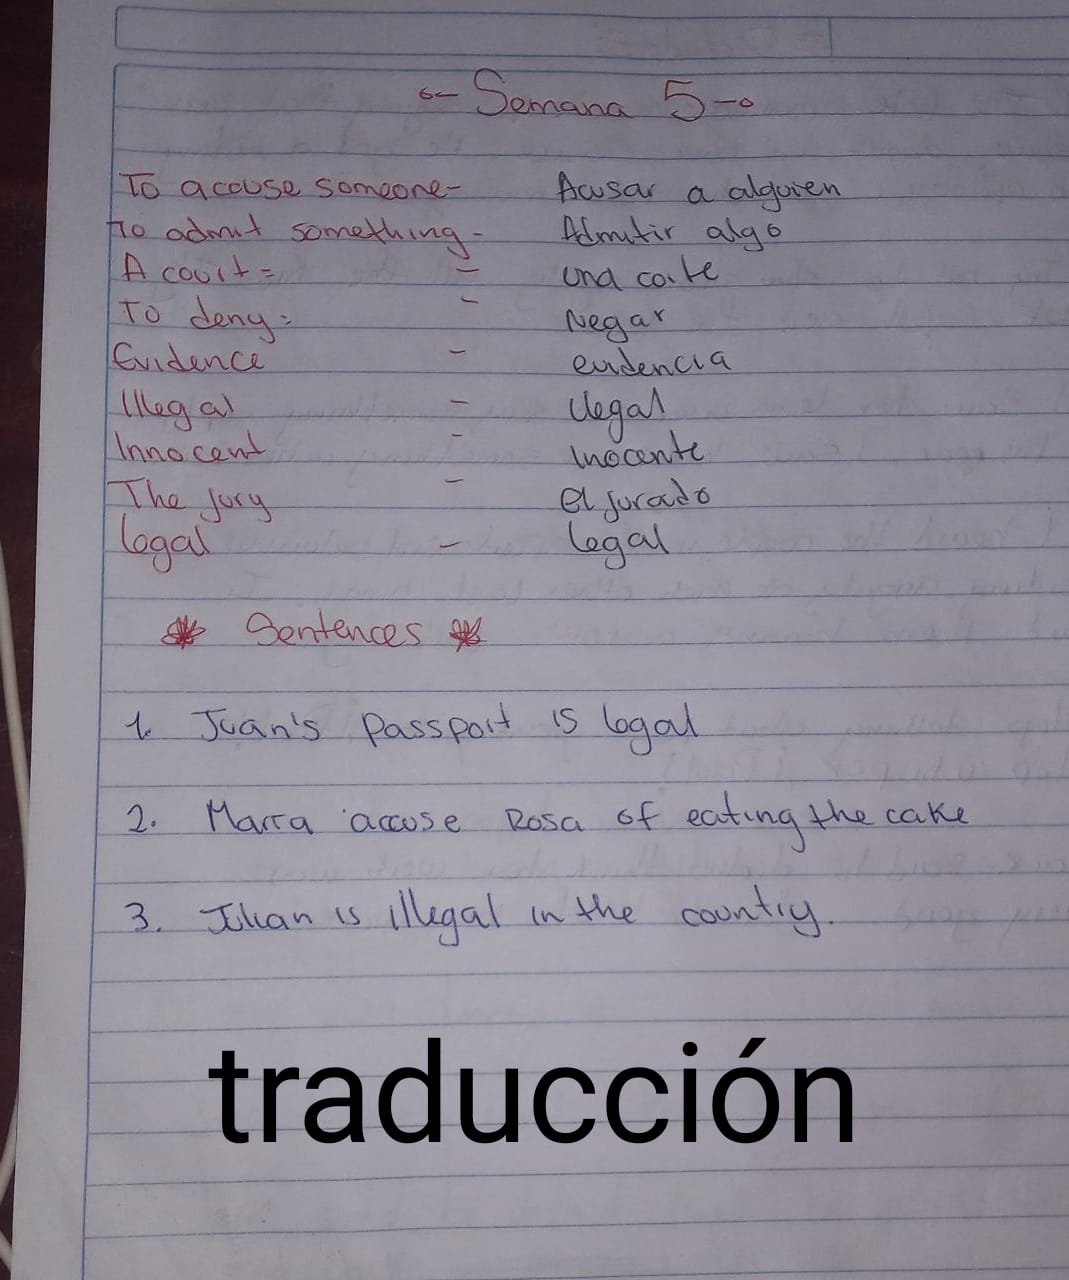 Semana 5
To accuse someone - Acusar a alguien
To admit something - Admitir algo
A court = - Una corte
To deny: - Negar
Evidence - evidencia
Illegal - Ilegal
Innocent - Inocente
The jury - el jurado
legal - legal
Sentences
1. Juan's Passport is legal
2. Marra accuse Rosa of eating the cake
3. Julian is illegal in the country.
traducción